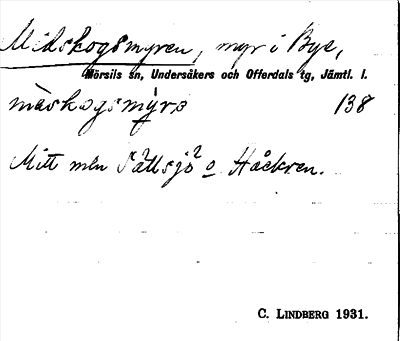 Midskogsmyren, myr i Bye,
Mörsils sn, Undersåkers och Offerdals tg, Jämtl. l.
mèskogsmỳrə 138
Mitt mln Sällsjö o Håckren.
C. LINDBERG 1931.